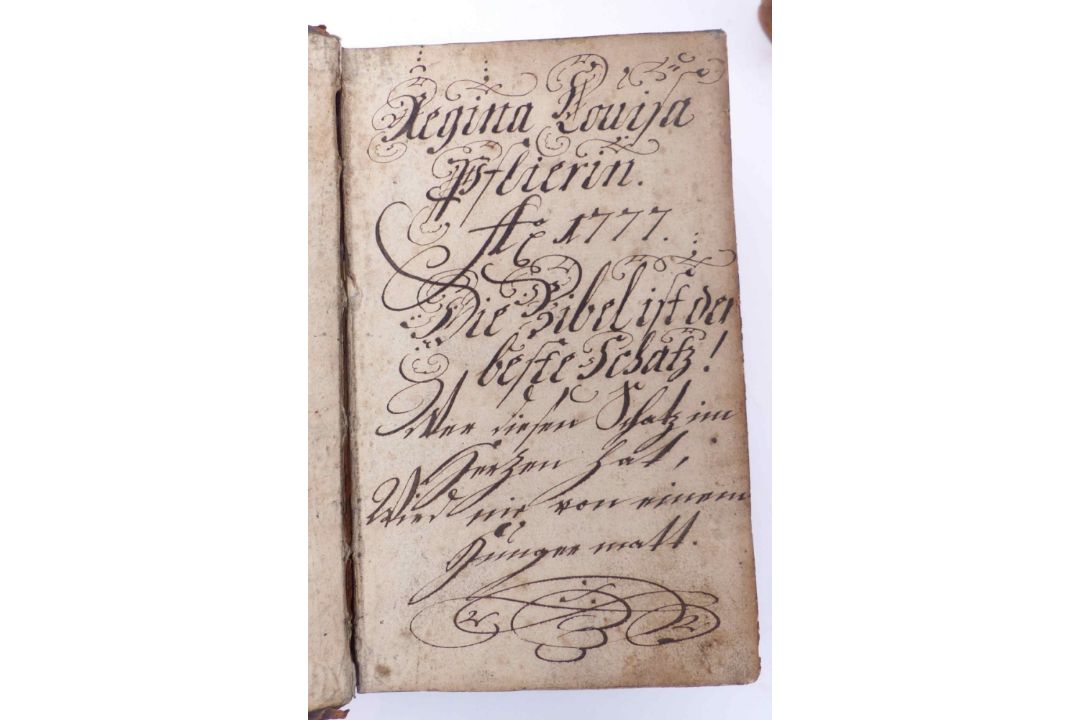 Regina Louisa
Pflierin.
Ao 1777.
Die Bibel ist der
beste Schatz!
Wer diesen Schatz im
Hertzen hat,
Wird nie von einem
Hunger matt.